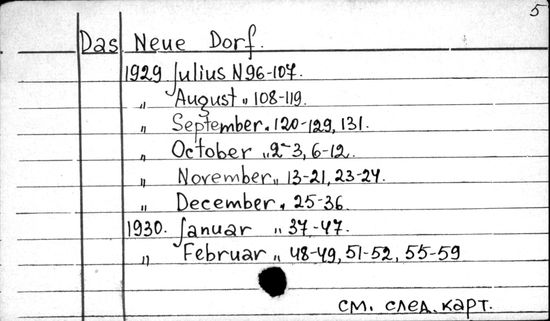 5
Das Neue Dorf.
1929 Julius N 96-107.
„ August „ 108-119.
„ September „ 120-129, 131.
„ October „ 2-3, 6-12.
„ November „ 13-21, 23-24.
„ December „ 25-36.
1930. Januar „ 37-47.
„ Februar „ 48-49, 51-52, 55-59
см. след. карт.